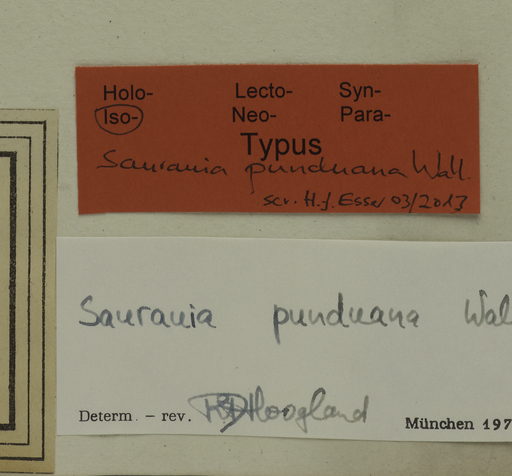 Holo- Lecto- Syn-
Iso- Neo- Para-
Typus
Saurauia punduana Wall.
scr. H.-J. Esser 03/2013
Saurauia punduana Wal
Determ. – rev. RDHoogland München 197